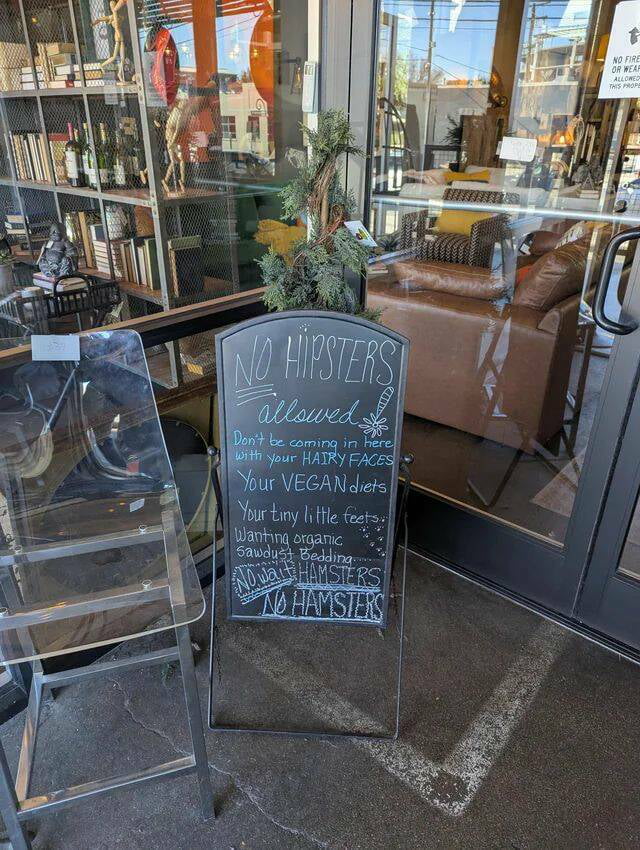 NO FIRE
OR WEAP
ALLOWED
THIS PROPE
NO HIPSTERS
allowed!
Don't be coming in here
with your HAIRY FACES
Your VEGAN diets
Your tiny little feets.
Wanting organic
sawdust Bedding...
No, wait HAMSTERS
NO HAMSTERS